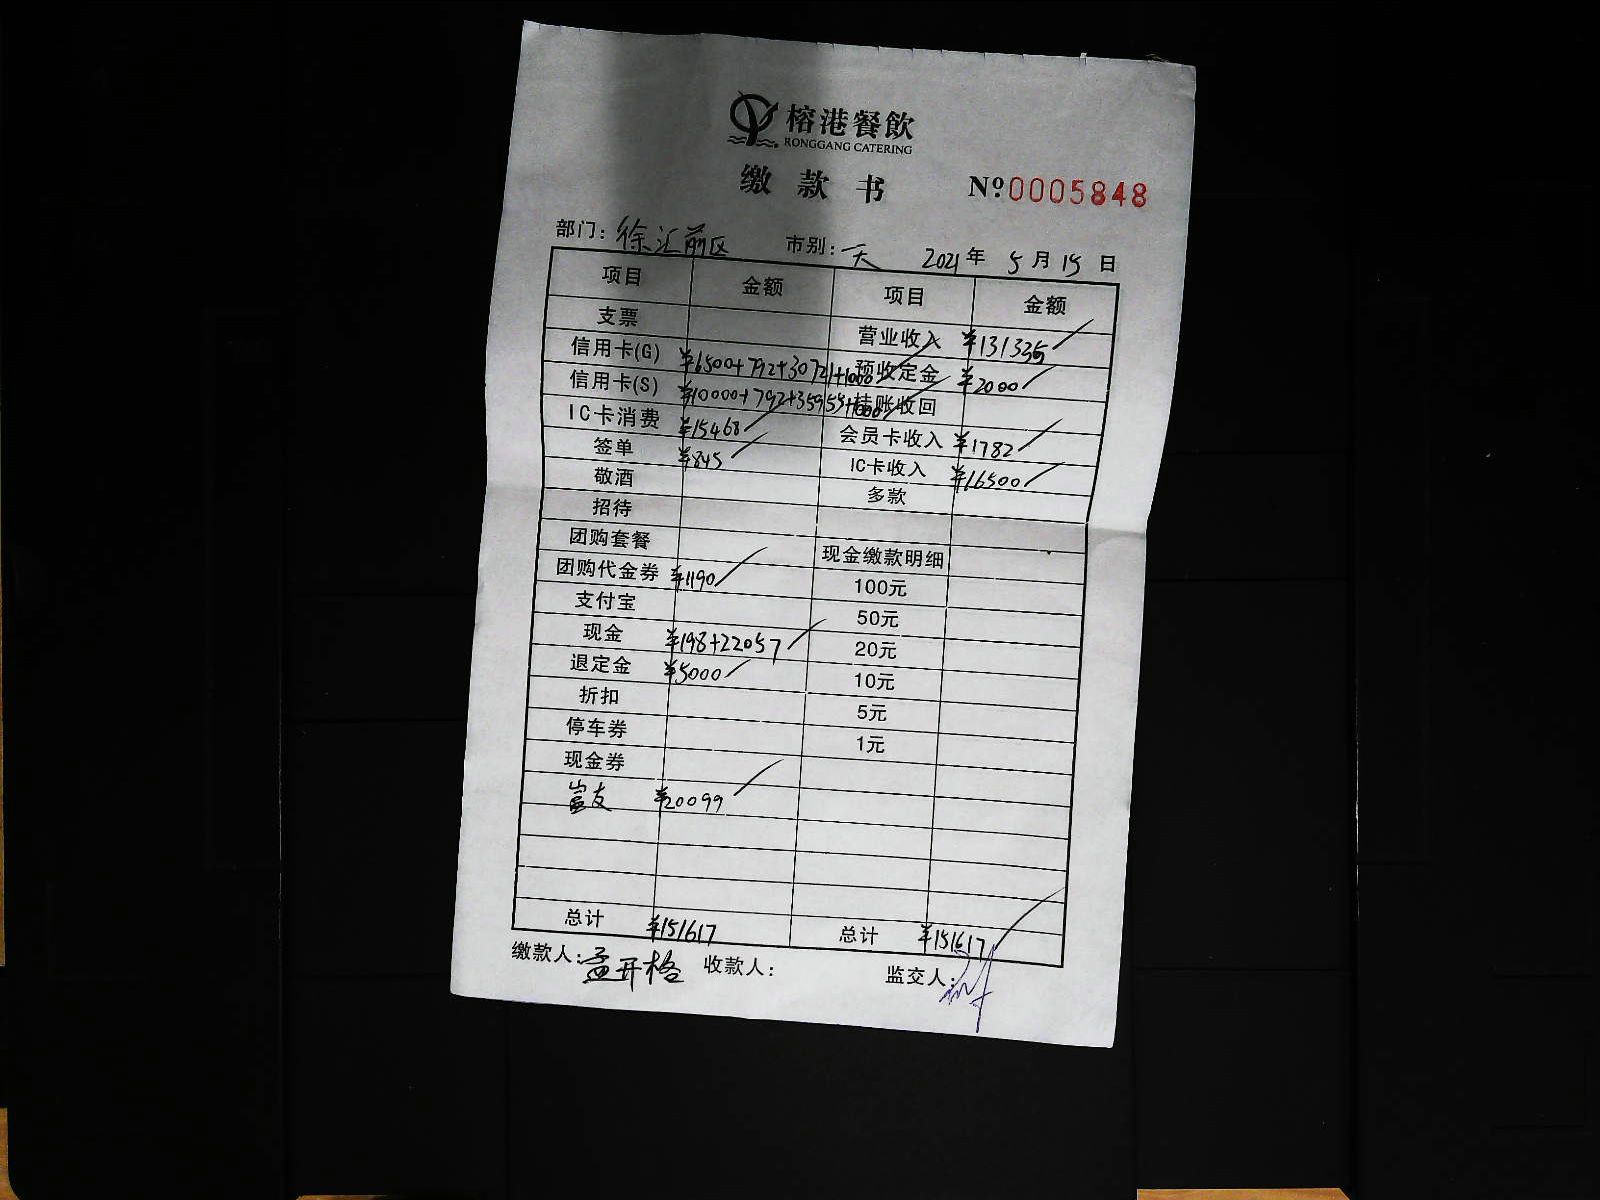 榕港餐飲
RONGGANG CATERING
缴款书 Nº0005848
部门：徐汇前区 市别：天 2021年5月15日
项目 金额 项目 金额
支票 营业收入 ¥131335
信用卡(G) ¥6500+792+30721+1000 预收定金 ¥2000
信用卡(S) ¥10000+792+35955+1000 挂账收回
IC卡消费 ¥15468 会员卡收入 ¥1782
签单 ¥845 IC卡收入 ¥16500
敬酒 多款
招待
团购套餐 现金缴款明细
团购代金券 ¥1190 100元
支付宝 50元
现金 ¥198+22057 20元
退定金 ¥5000 10元
折扣 5元
停车券 1元
现金券
¥20099
总计 ¥151617 总计 ¥151617
缴款人：孟开格 收款人： 监交人：